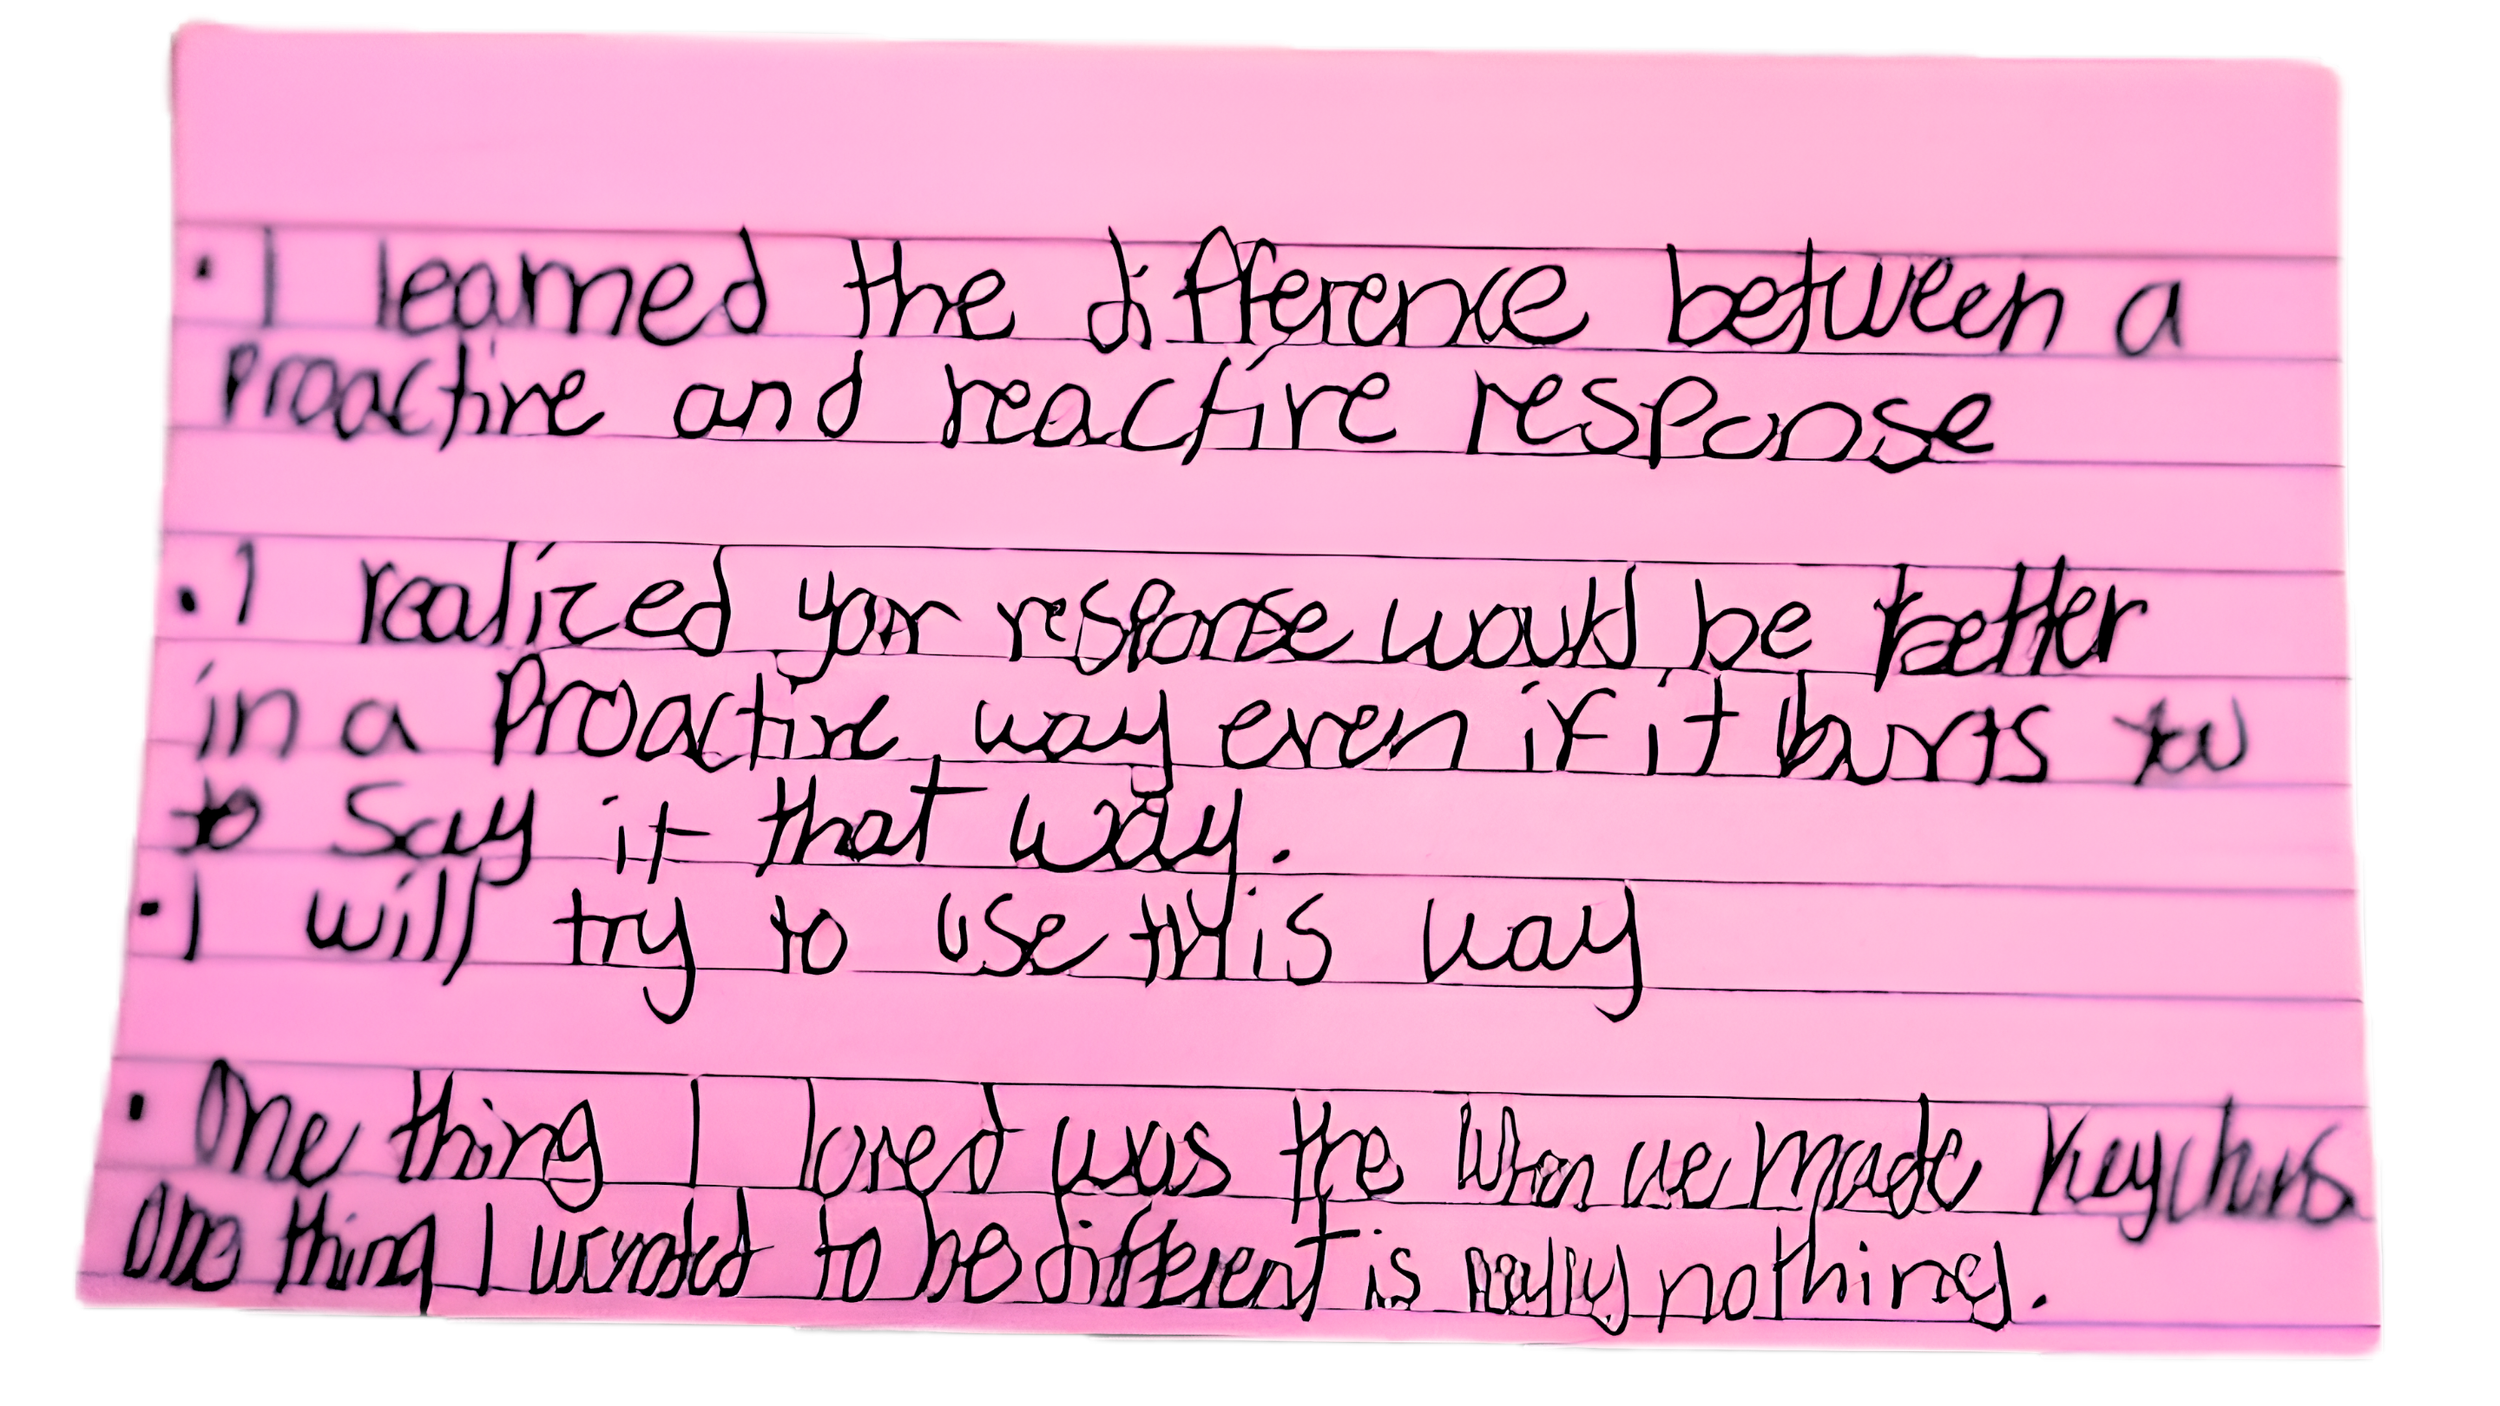 • I learned the difference between a
Proactive and reactive response
• I realized your response would be better
in a Proactive way even if it hurts you
to say it that way.
• I will try to use this way
• One thing I loved was the When we made
One thing I wanted to be different is really nothing.